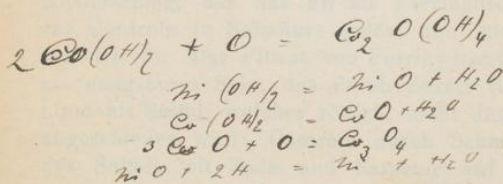 2 Co(OH)2 + O = Co2 O(OH)4
Ni (OH)2 = Ni O + H2O
Co (OH)2 = Co O + H2O
3 Co O + O = Co3 O4
Ni O + 2H = Ni + H2O